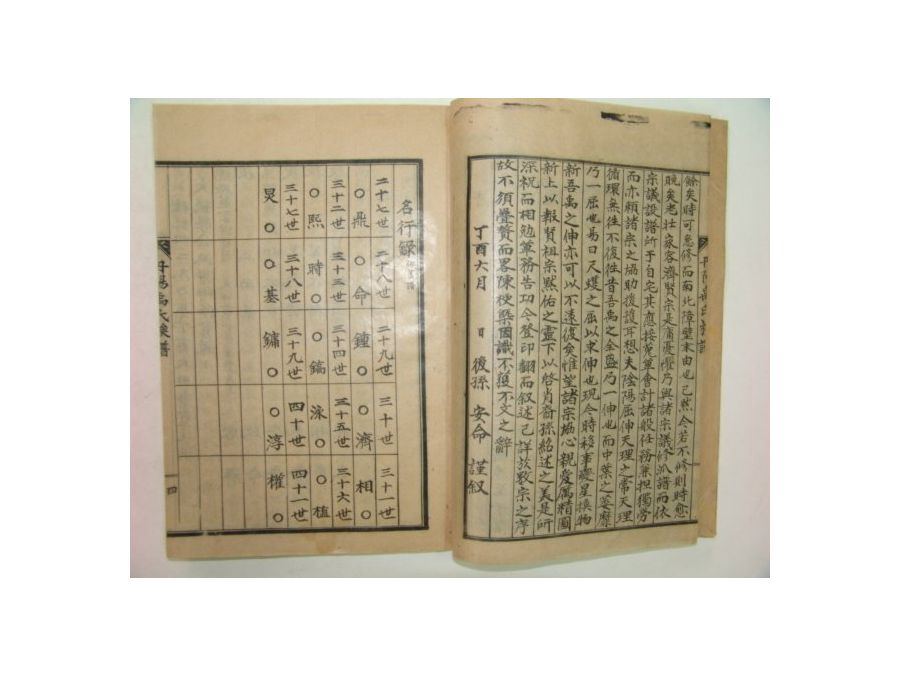 餘矣時可急修而南北障壁末由也已然今若不修則時愈
晩矣老壯家容齊賢宗長甫憂懼乃與諸宗議修派譜而依
宗議設譜所于自宅其應接蒐單會計諸般任務兼担獨劳
而亦賴諸宗之協助復護耳想夫陰陽屈伸天理之常天理
循環無往不復往昔吾禹之全盛乃一伸也而中葉之萎靡
乃一屈也易曰尺蠖之屈以求伸也現今時移事變星換物
新吾禹之伸亦可以不遠復矣惟望諸宗協心親愛厲精圖
新上以報賢祖宗黙佑之靈下以啓肖裔孫紹述之美是所
深祝而相勉單務告功今登印翻而叙述已詳於數宗之序
故不須疊贅而畧陳梗槩因識不獲不文之辭
丁酉六月 日 後孫 安命 謹叙
名行録
二十七世 二十八世 二十九世 三十世 三十一世
○鼎 ○命 鍾○ ○濟 相○
三十二世 三十三世 三十四世 三十五世 三十六世
○熙 時○ ○鎬 泳○ ○植
三十七世 三十八世 三十九世 四十世 四十一世
炅○ ○基 鏞○ ○淳 權○
丹陽禹氏族譜
一四